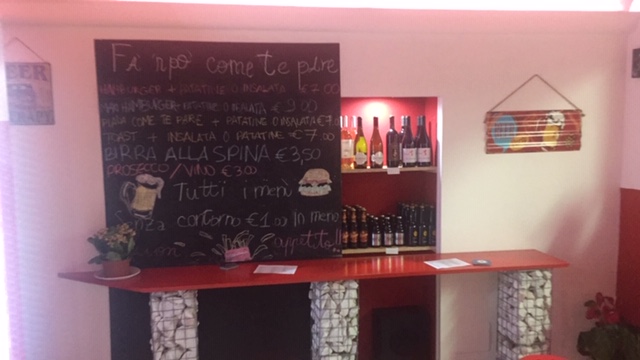 Fa 'npò come te pare
HAMBURGER + PATATINE O INSALATA €7.00
MAXI HAMBURGER + PATATINE O INSALATA €9.00
PIZZA COME TE PARE + PATATINE O INSALATA €7
TOAST + INSALATA O PATATINE €7.00
BIRRA ALLA SPINA €3,50
PROSECCO/VINO €3.00
Tutti i menù
Senza contorno €1.00 In meno
appetito!!
BEER